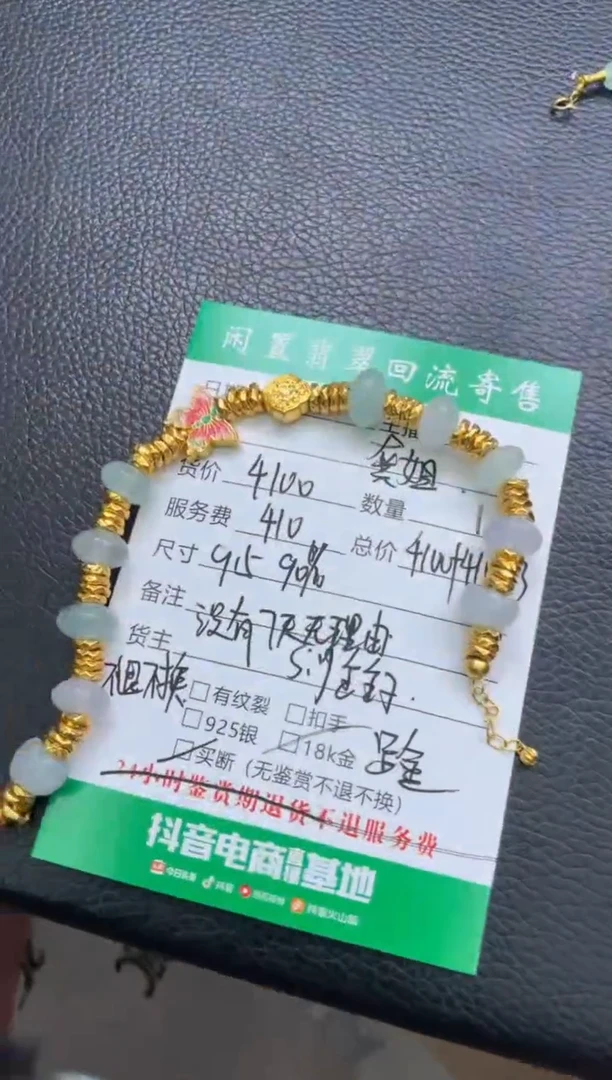 闲置翡翠回流寄售
主播
笑姐
货价 4100 数量 1
服务费 410 总价 4100+41
尺寸 915 90%
备注 没有7天无理由
货主
不退不换 □有纹裂 □扣手
□925银 □18k金 足金
□买断（无鉴赏不退不换）
24小时鉴赏期退货不退服务费
抖音电商直播基地
今日头条 抖音 西瓜视频 抖音火山版